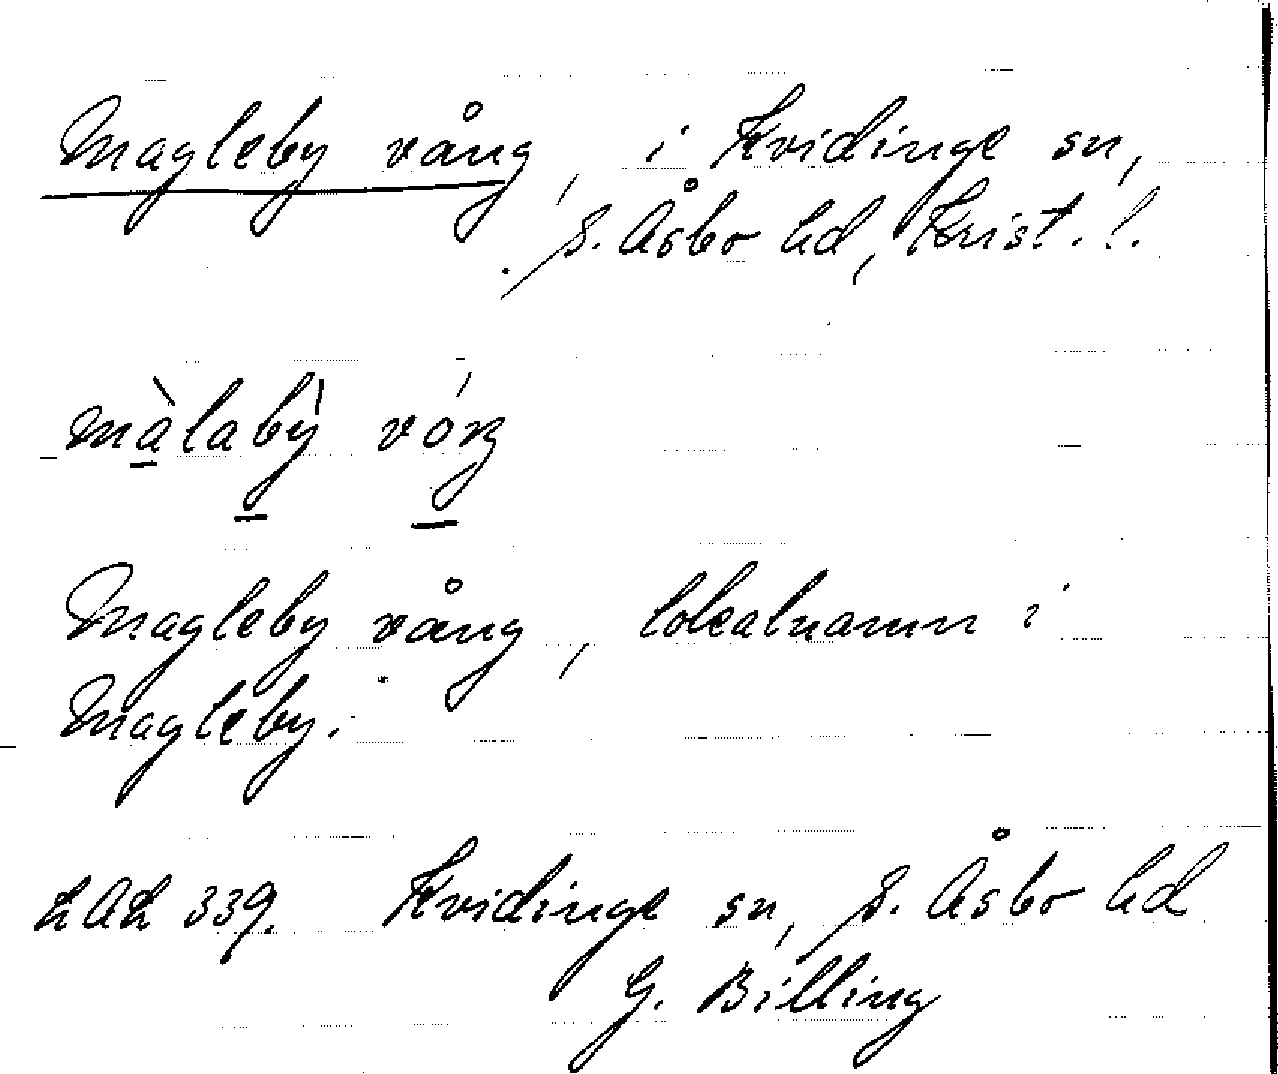 Magleby vång, i Kvidinge sn,
S. Åsbo hd, Krist. l.
màlabỳ vóŋ
Magleby vång, lokalnamn i
Magleby.
LAL 339. Kvidinge sn, S. Åsbo hd
G. Billing